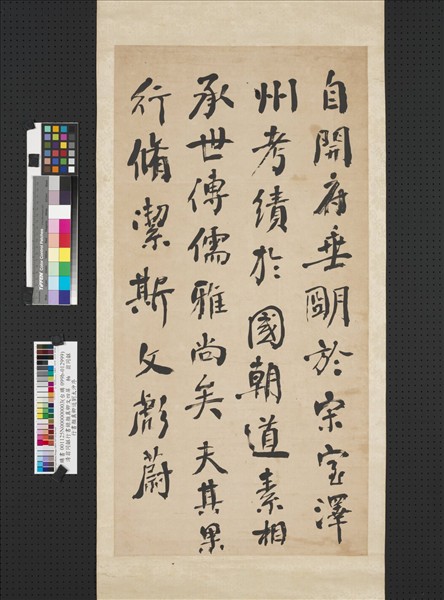 自開府垂朙於宋室澤
州考績於國朝道素相
承世傳儒雅尚矣夫其果
行脩潔斯文彪蔚